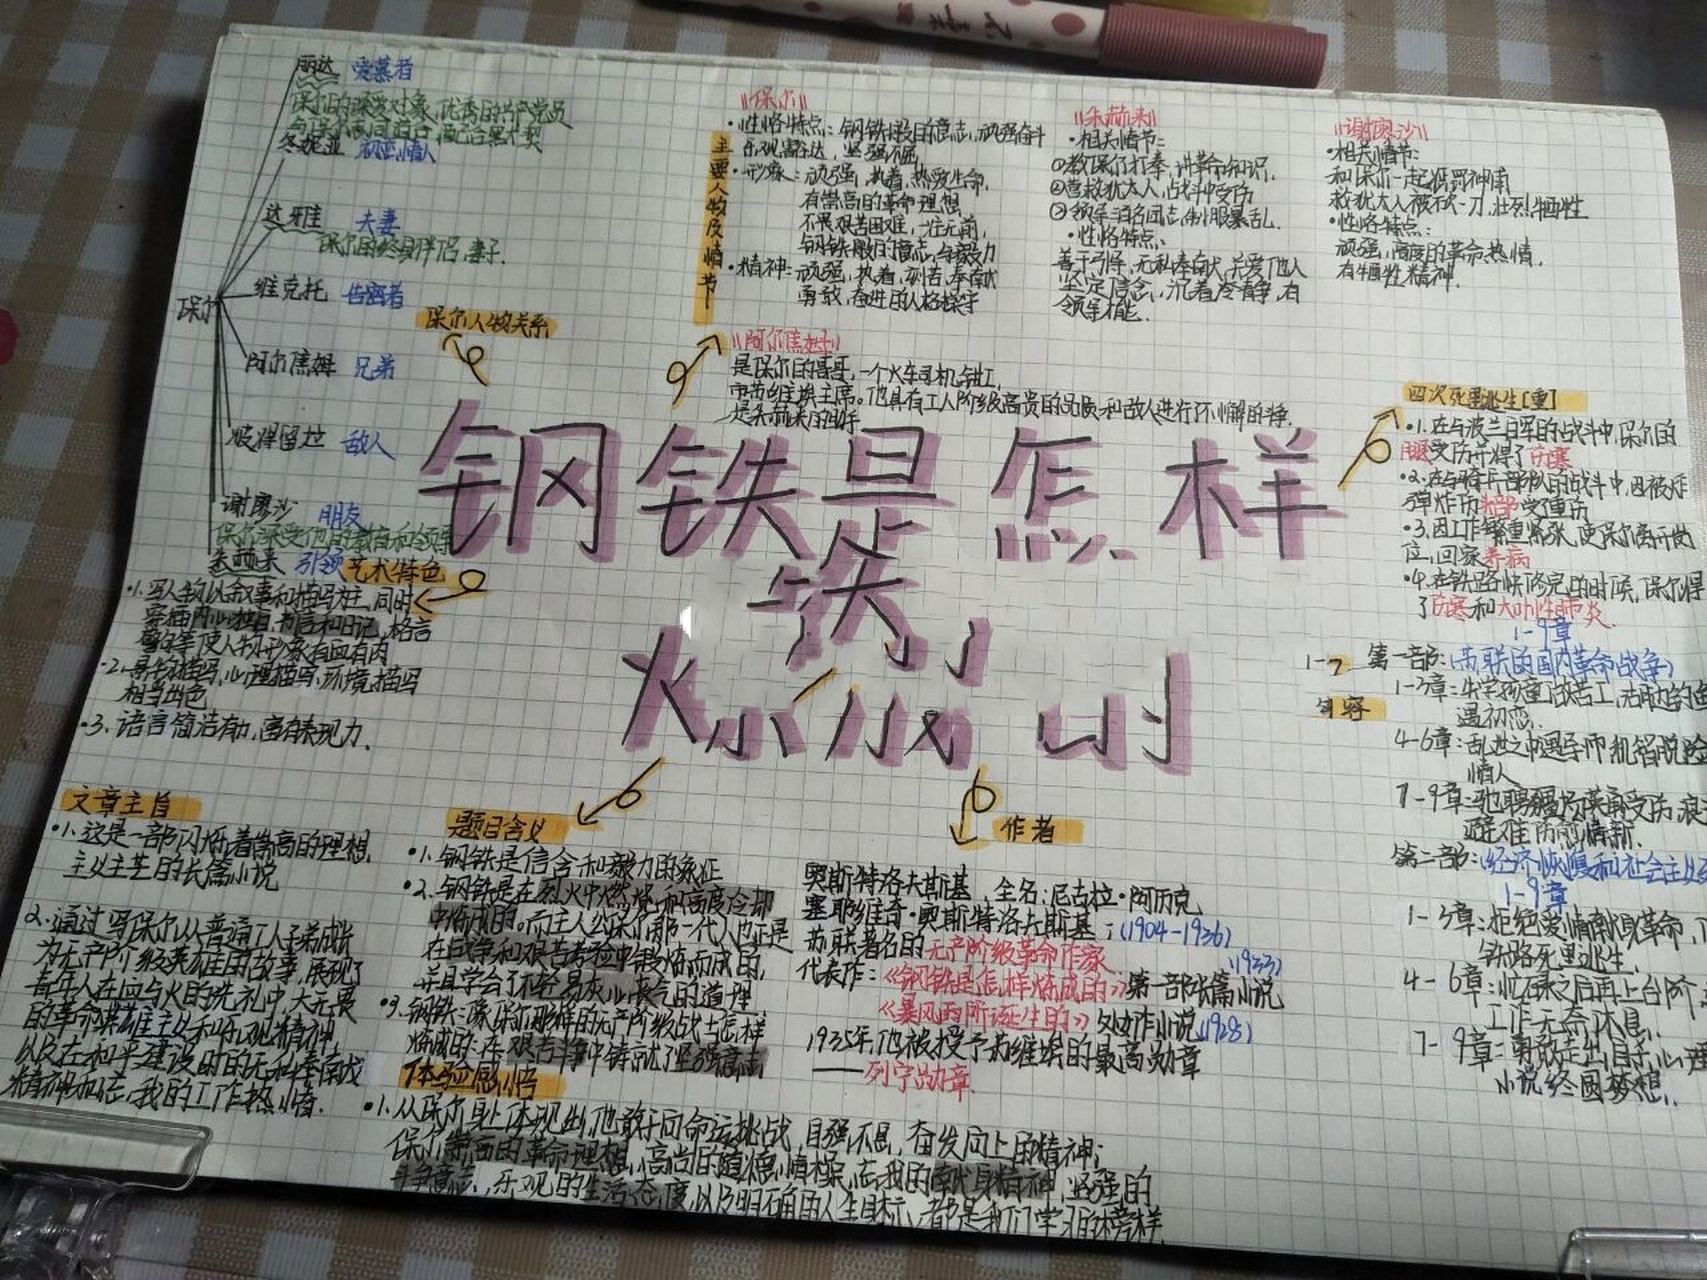 丽达 爱慕者
保尔的深爱对象,优秀的共产党员
冬妮亚 初恋情人
达雅 夫妻
保尔的终身伴侣,妻子.
维克托 告密者
保尔
保尔人物关系
阿尔焦姆 兄弟
彼得留拉 敌人
谢廖沙 朋友
保尔深受他的教育和领导
朱赫来 引领
主要人物及情节
"保尔"
·性格特点:钢铁般的意志,顽强奋斗
乐观豁达,坚强不屈
·形象:顽强,执着,热爱生命,
有崇高的革命理想
不畏艰苦困难,一往无前,
钢铁般的意志,与毅力
·精神:顽强,执着,刻苦,奉献
勇敢,奋进的人格操守
"朱赫来"
·相关情节:
①教保尔打拳,讲革命知识.
②营救犹太人,战斗中受伤
③领导
制服暴乱.
·性格特点:
善于引导,无私奉献,关爱他人
坚定信念,沉着冷静,有
领导才能.
"谢廖沙"
·相关情节:
和保尔一起惩罚神甫
救犹太人被
一刀,壮烈牺牲
·性格特点:
顽强,高度的革命热情,
有牺牲精神.
"阿尔焦姆"
是保尔的哥哥,一个火车司机,钳工,
市苏维埃主席。他具有工人阶级高贵的品质和敌人进行不懈的斗争.
是朱赫来的助手
钢铁是怎样
炼成的
四次死里逃生[重]
·1.在与波兰白军的战斗中,保尔的
腿受伤并得了伤寒
·2.在与骑兵部队的战斗中,因被炸
弹炸伤头部受重伤
·3.因工作繁重紧张,使保尔离开岗
位,回家养病
·4.在铁路快修完的时候,保尔得
了伤寒和大叶性肺炎.
艺术特色
·1.写人物以叙事和描写为主,同时
穿插内心独白,书信和日记,格言
警句等,使人物形象有血有肉
·2.景物描写,心理描写,环境描写
相当出色
·3.语言简洁有力,富有表现力.
内容
1-9章
第一部:(苏联的国内革命战争)
1-3章:失学孩童做苦工,
遇初恋.
4-6章:乱世之中遇导师机智脱险
情人
7-9章:驰骋疆场英勇受伤,
避难
第二部:(经济恢复和社会主义
1-9章
1-3章:拒绝爱情献身革命,
铁路死里逃生.
4-6章:忙碌之后再上台阶
工作无奈休息.
7-9章:勇敢走出自杀心理
小说终圆梦想.
文章主旨
·1.这是一部闪烁着崇高的理想
主义主芒的长篇小说
2.通过写保尔从普通工人子弟成长
为无产阶级英雄的故事,展现了
青年人在血与火的洗礼中,大无畏
的革命英雄主义和乐观精神,
以及在和平建设时的无私奉献
精神和忘我的工作热情.
题目含义
·1.钢铁是信念和毅力的象征
·2.钢铁是在烈火中燃烧和高度冷却
中炼成的.而主人公保尔那一代人也正是
在战争和艰苦考验中锻炼而成的,
并且学会了不轻易灰心丧气的道理.
·3.钢铁:像保尔那样的无产阶级战士怎样
炼成的:在艰苦斗争中铸就了坚强意志
作者
奥斯特洛夫斯基,全名:尼古拉·阿历克
塞耶维奇·奥斯特洛夫斯基;(1904-1936)
苏联著名的无产阶级革命作家
代表作:《钢铁是怎样炼成的》第一部长篇小说(1933)
《暴风雨所诞生的》处女作小说(1928)
1935年,他被授予苏维埃的最高勋章
——列宁勋章.
体验感悟
·1.从保尔身上体现出,他敢于向命运挑战,自强不息,奋发向上的精神;
保尔崇高的革命理想,高尚的道德情操,忘我的献身精神,坚强的
斗争意志,乐观的生活态度,以及明确的人生目标,都是我们学习的榜样.